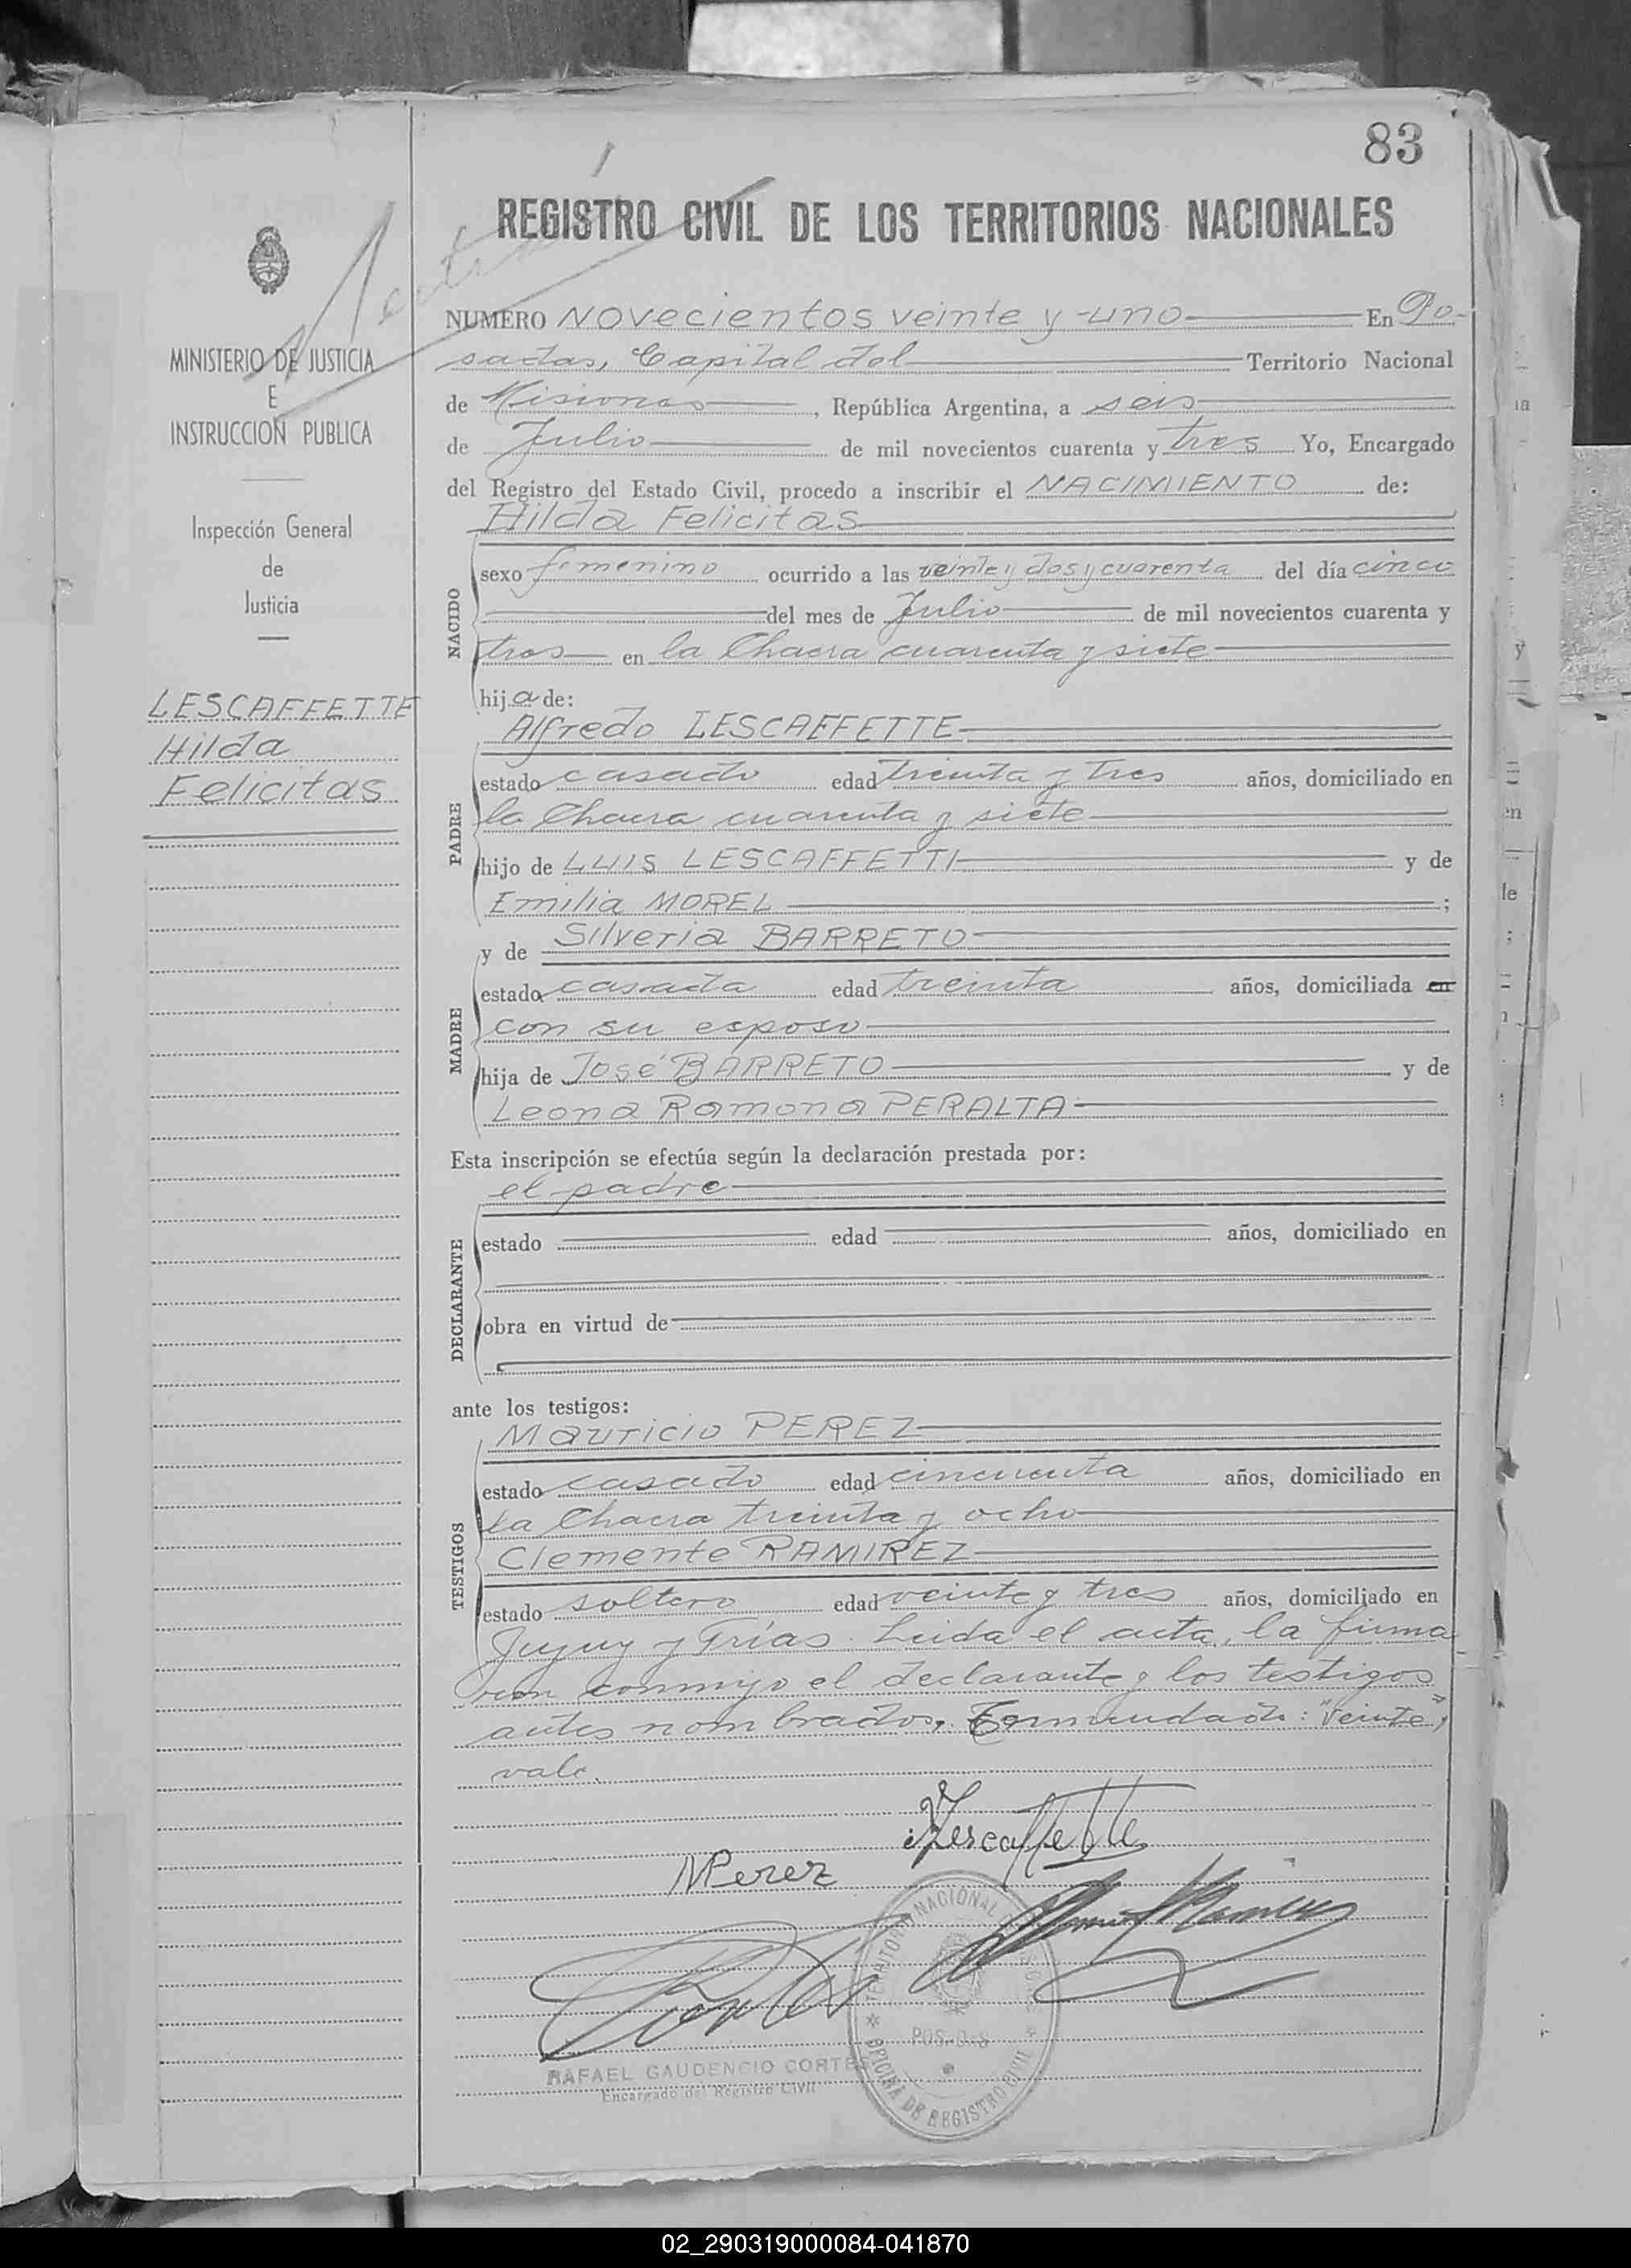 83
REGISTRO CIVIL DE LOS TERRITORIOS NACIONALES
MINISTERIO DE JUSTICIA
E
INSTRUCCION PUBLICA
Inspección General
de
Justicia
LESCAFFETTE
Hilda
Felicitas
NUMERO Novecientos veinte y uno En Po-
sadas, Capital del Territorio Nacional
de Misiones, República Argentina, a seis
de Julio de mil novecientos cuarenta y tres Yo, Encargado
del Registro del Estado Civil, procedo a inscribir el NACIMIENTO de:
Hilda Felicitas
NACIDO
sexo femenino ocurrido a las veinte y dos y cuarenta del día cinco
del mes de Julio de mil novecientos cuarenta y
tres en la Chacra cuarenta y siete
hija de:
Alfredo LESCAFFETTE
PADRE
estado casado edad treinta y tres años, domiciliado en
la Chacra cuarenta y siete
hijo de LUIS LESCAFFETTI y de
Emilia MOREL ;
y de Silveria BARRETO
MADRE
estado casada edad treinta años, domiciliada en
con su esposo
hija de José BARRETO y de
Leona Ramona PERALTA
Esta inscripción se efectúa según la declaración prestada por:
el padre
DECLARANTE
estado edad años, domiciliado en
obra en virtud de
ante los testigos:
Mauricio PEREZ
TESTIGOS
estado casado edad cincuenta años, domiciliado en
la Chacra treinta y ocho
Clemente RAMIREZ
estado soltero edad veinte y tres años, domiciliado en
Jujuy y Frías. Leida el acta, la firma
ron conmigo el declarante y los testigos
antes nombrados. Enmendado: "veinte",
vale.
Lescaffette
MPerez
Cortes
TERRITORIO NACIONAL
POSADAS
OFICINA DE REGISTRO CIVIL
RAFAEL GAUDENCIO CORTES
Encargado del Registro Civil
02_290319000084-041870